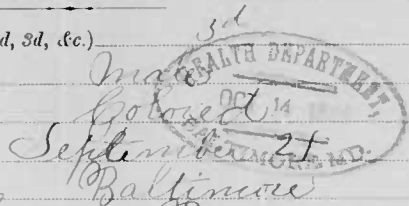 d, 3d, &c.) 3d
Male
Colored
September 21
Baltimore
HEALTH DEPARTMENT,
OCT 14
BALTIMORE MD.